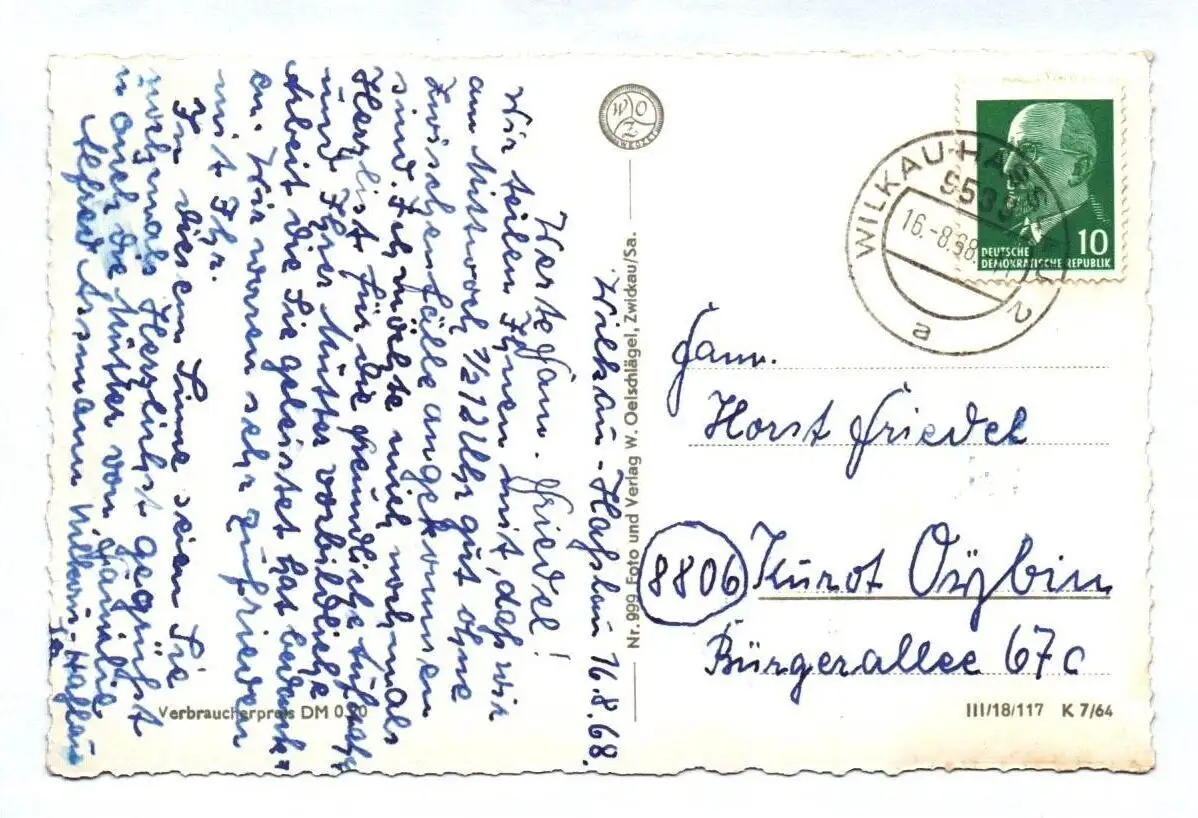 Wilkau-Haßlau 16.8.68.
Werte Fam. Friedel!
Wir teilen Ihnen mit, daß wir
am Mittwoch ½12 Uhr gut ohne
Zwischenfälle angekommen
sind. Ich möchte mich nochmals
Herzlist für die freundliche Aufnahme
und Ihrer Mutter vorbildliche
Arbeit die Sie geleistet hat bedank-
en. Wir waren sehr zufrieden
mit Ihr.
In diesem Sinne seien Sie
nochmals Herzlichst gegrüßt
u auch die Mutter von Familie
Alfred Assmann Wilkau-Haßlau
Verbraucherpreis DM 0,20
WOZ
Nr. 999 Foto und Verlag W. Oelschlägel, Zwickau/Sa.
WILKAU-HASSLAU 2
9533
16.-8.68.
a
DEUTSCHE
DEMOKRATISCHE REPUBLIK
10
Fam.
Horst Friedel
8806 Kurot Oybin
Bürgerallee 67c
III/18/117 K 7/64